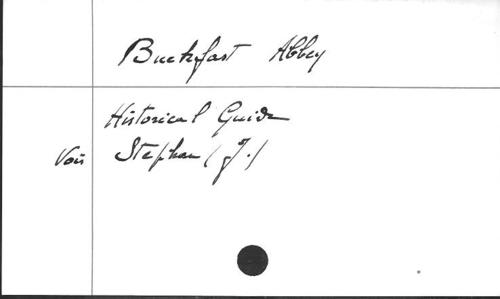 Buckfast Abbey
Historical Guide
Voir Stephan (J.)